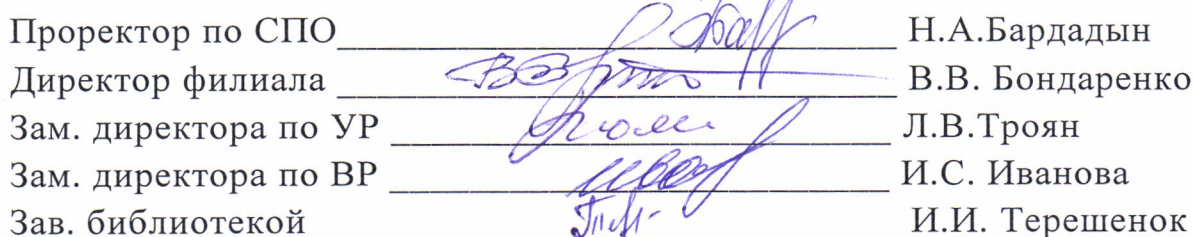 Проректор по СПО____________________________ Н.А.Бардадын
Директор филиала ____________________________ В.В. Бондаренко
Зам. директора по УР _________________________ Л.В.Троян
Зам. директора по ВР _________________________ И.С. Иванова
Зав. библиотекой И.И. Терешенок